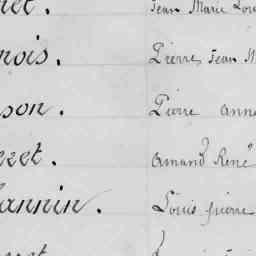 Jean Marie
nois. Pierre Jean M
son. Pierre anne
zet. Amand René
annin. Louis pierre